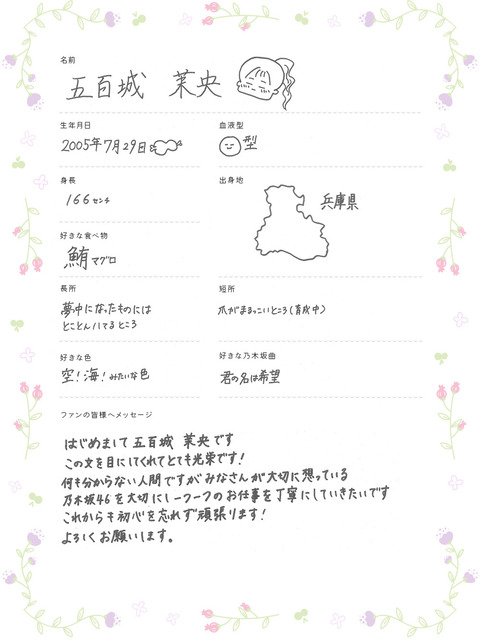 名前
五百城 茉央
生年月日
2005年7月29日
血液型
型
身長
166センチ
出身地
兵庫県
好きな食べ物
鮪マグロ
長所
夢中になったものには
とことんハマるところ
短所
爪がまるっこいところ(育成中)
好きな色
空!海!みたいな色
好きな乃木坂曲
君の名は希望
ファンの皆様へメッセージ
はじめまして五百城 茉央です
この文を目にしてくれてとても光栄です!
何も分からない人間ですがみなさんが大切に想っている
乃木坂46を大切にし一つ一つのお仕事を丁寧にしていきたいです
これからも初心を忘れず頑張ります!
よろしくお願いします。